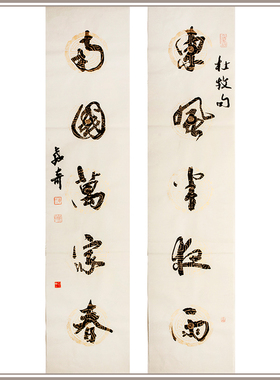 東風半夜雨
杜牧句
南國萬家春